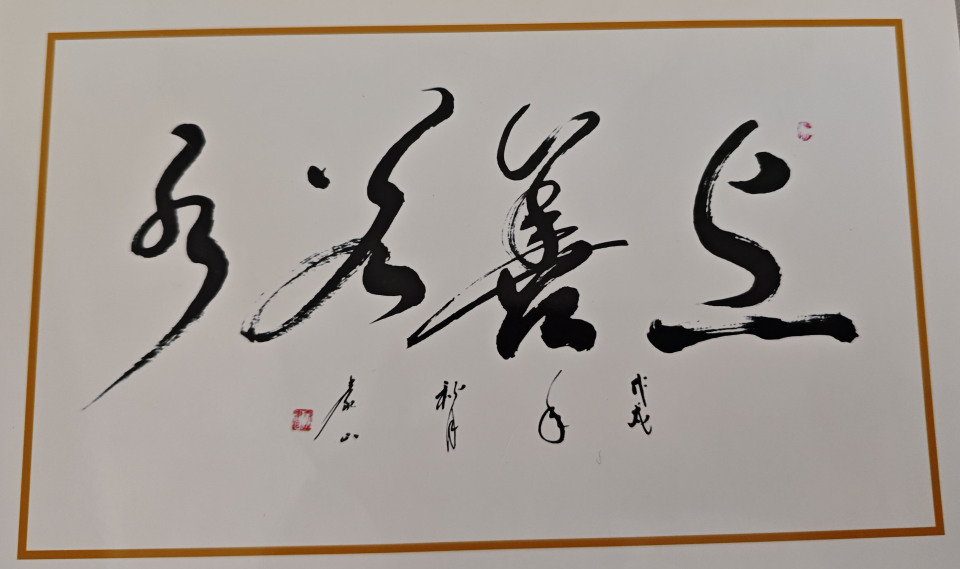 上善若水
戊戌 年 秋月